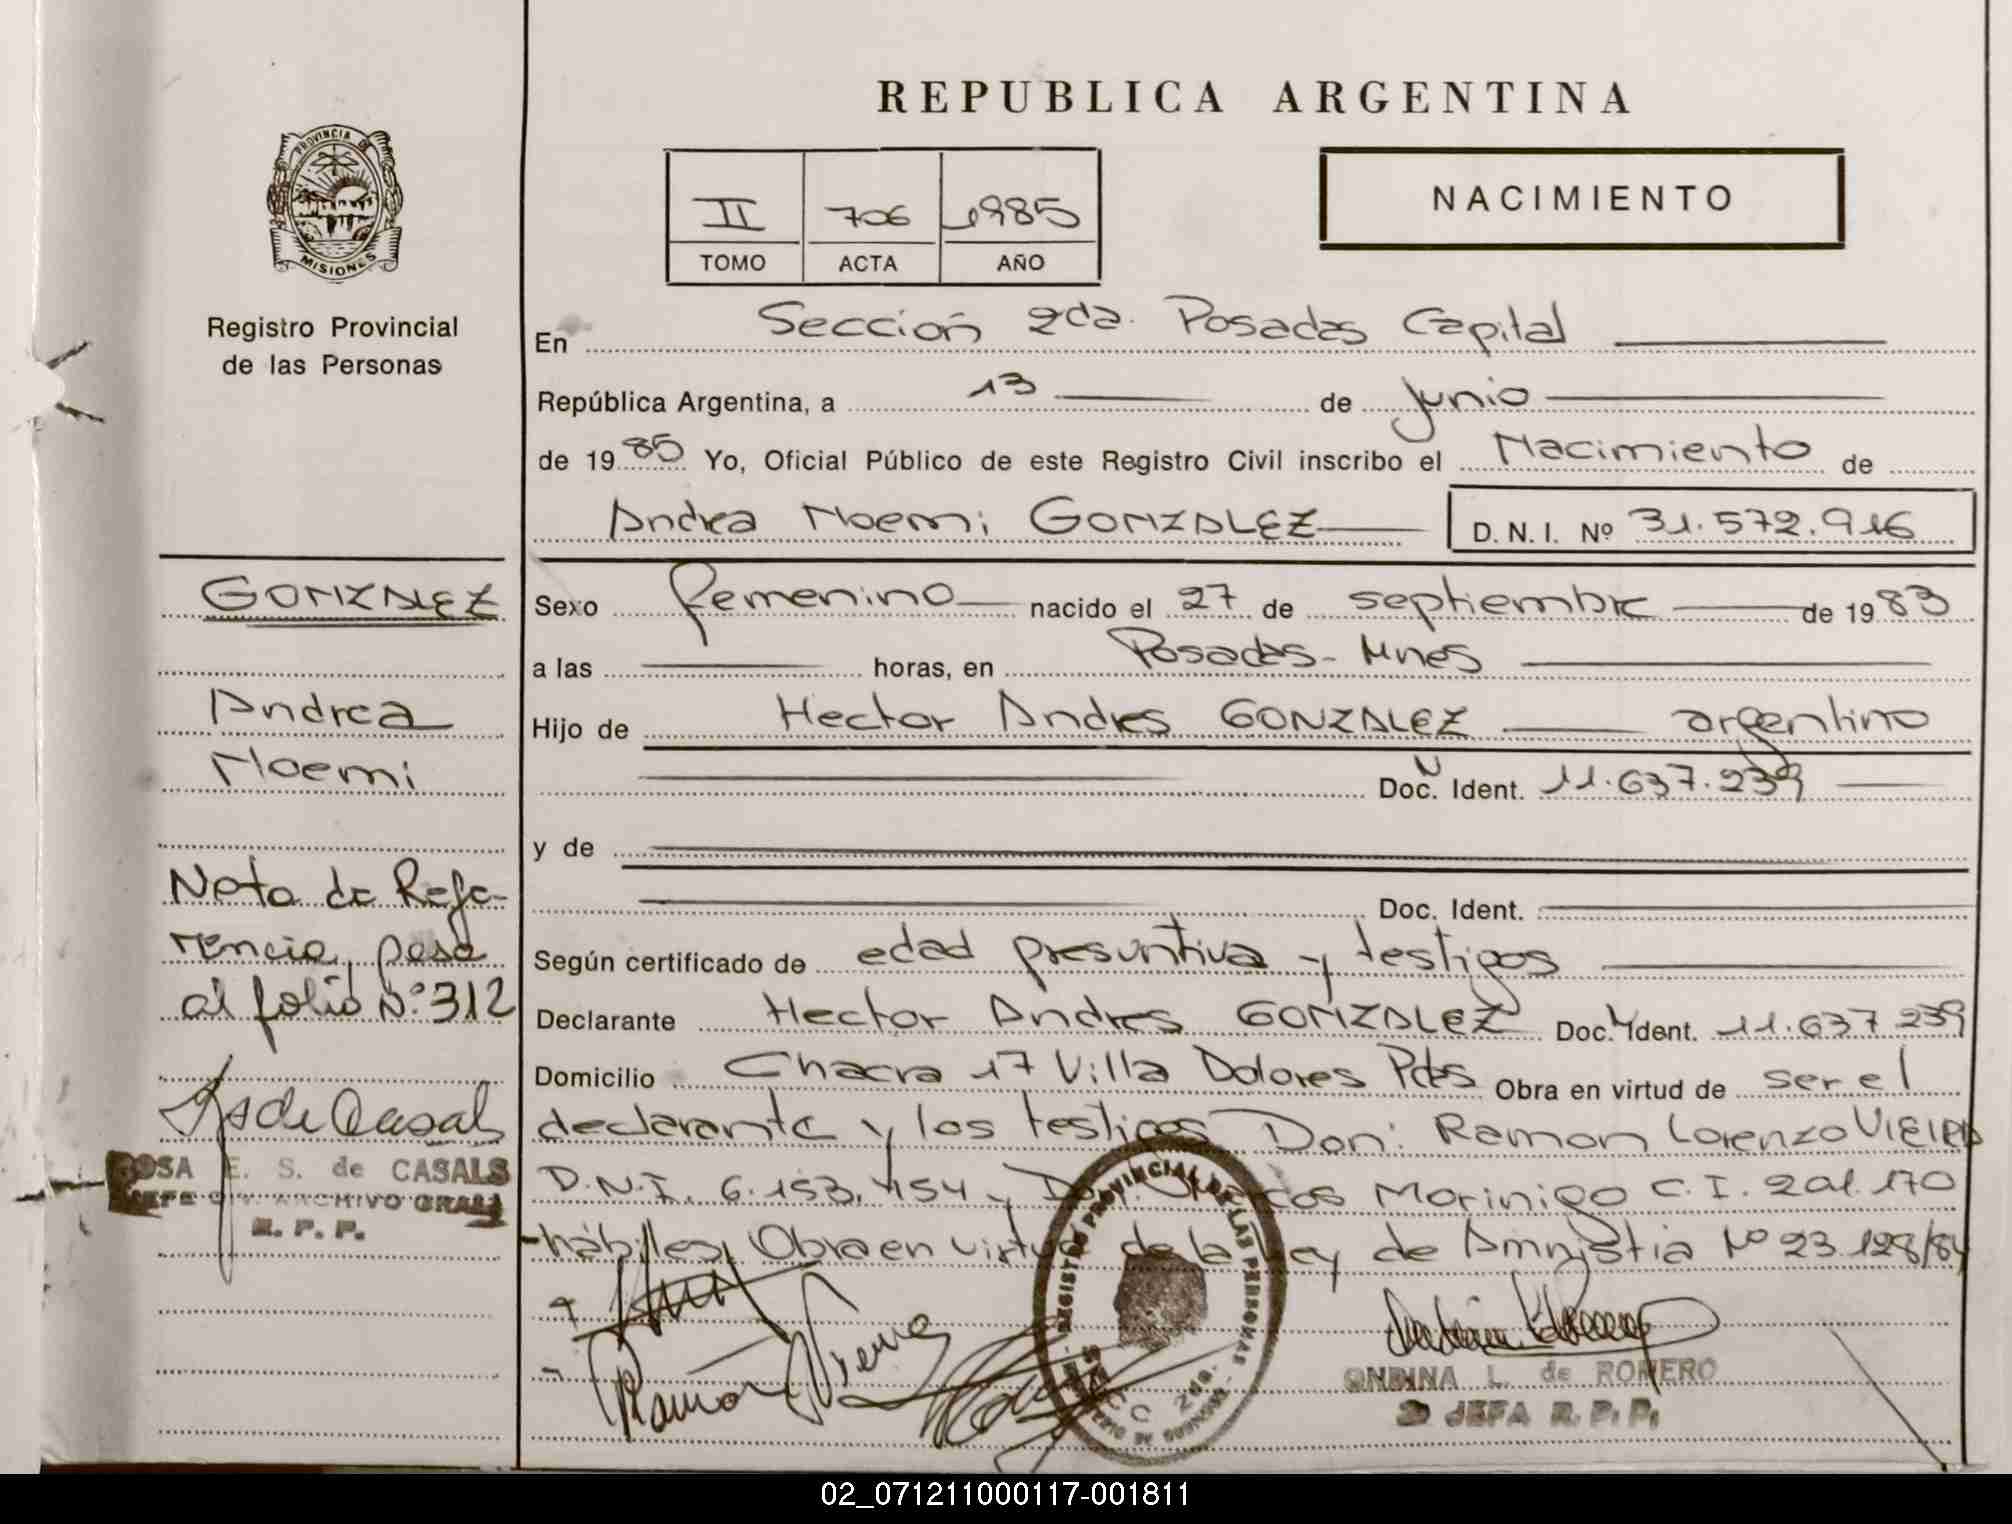 REPUBLICA ARGENTINA
PROVINCIA DE
MISIONES
Registro Provincial
de las Personas
II 706 1985
TOMO ACTA AÑO
NACIMIENTO
En Sección 2da. Posadas Capital
República Argentina, a 13 de Junio
de 1985 Yo, Oficial Público de este Registro Civil inscribo el Nacimiento de
Andrea Noemi GONZALEZ D. N. I. Nº 31.572.916
Sexo femenino nacido el 27 de septiembre de 1983
a las horas, en Posadas - Mnes
Hijo de Hector Andres GONZALEZ argentino
Doc. Ident. 11.637.239
y de
Doc. Ident.
Según certificado de edad presuntiva y testigos
Declarante Hector Andres GONZALEZ Doc. Ident. 11.637.239
Domicilio Chacra 17 Villa Dolores Pdas Obra en virtud de ser el
declarante y los testigos Don: Ramon Lorenzo VIEIRA
D.N.I. 6.153.454 y Morinigo C.I. 201.170
hábiles, Obra en virtud de la Ley de Amnistia Nº 23.128/84
GONZALEZ
Andrea
Noemi
Nota de Refe-
rencia, pasa
al folio Nº 312
ROSA E. S. de CASALS
JEFE DIV. ARCHIVO GRAL.
R. P. P.
REGISTRO PROVINCIAL DE LAS PERSONAS
SECC 2da.
Ramón
ONDINA L. de ROMERO
JEFA R. P. P.
02_071211000117-001811